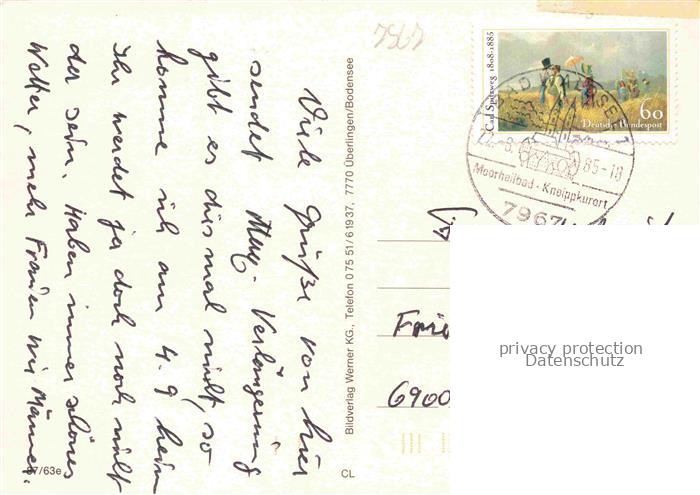 Viele Grüße von hier
sendet Verlängerung
gibt es dies mal nicht, so
komme ich am 4.9 heim
Ihr werdet ja doch noch nicht
da sein. Haben immer schönes
Wetter, mehr Frauen wie Männer.
87/63e
CL
Bildverlag Werner KG., Telefon 0 75 51/6 19 37, 7770 Überlingen/Bodensee
7967
Carl Spitzweg 1808-1885
60
Deutsche Bundespost
85-18
Moorheilbad · Kneippkurort
7967
6900
privacy protection
Datenschutz